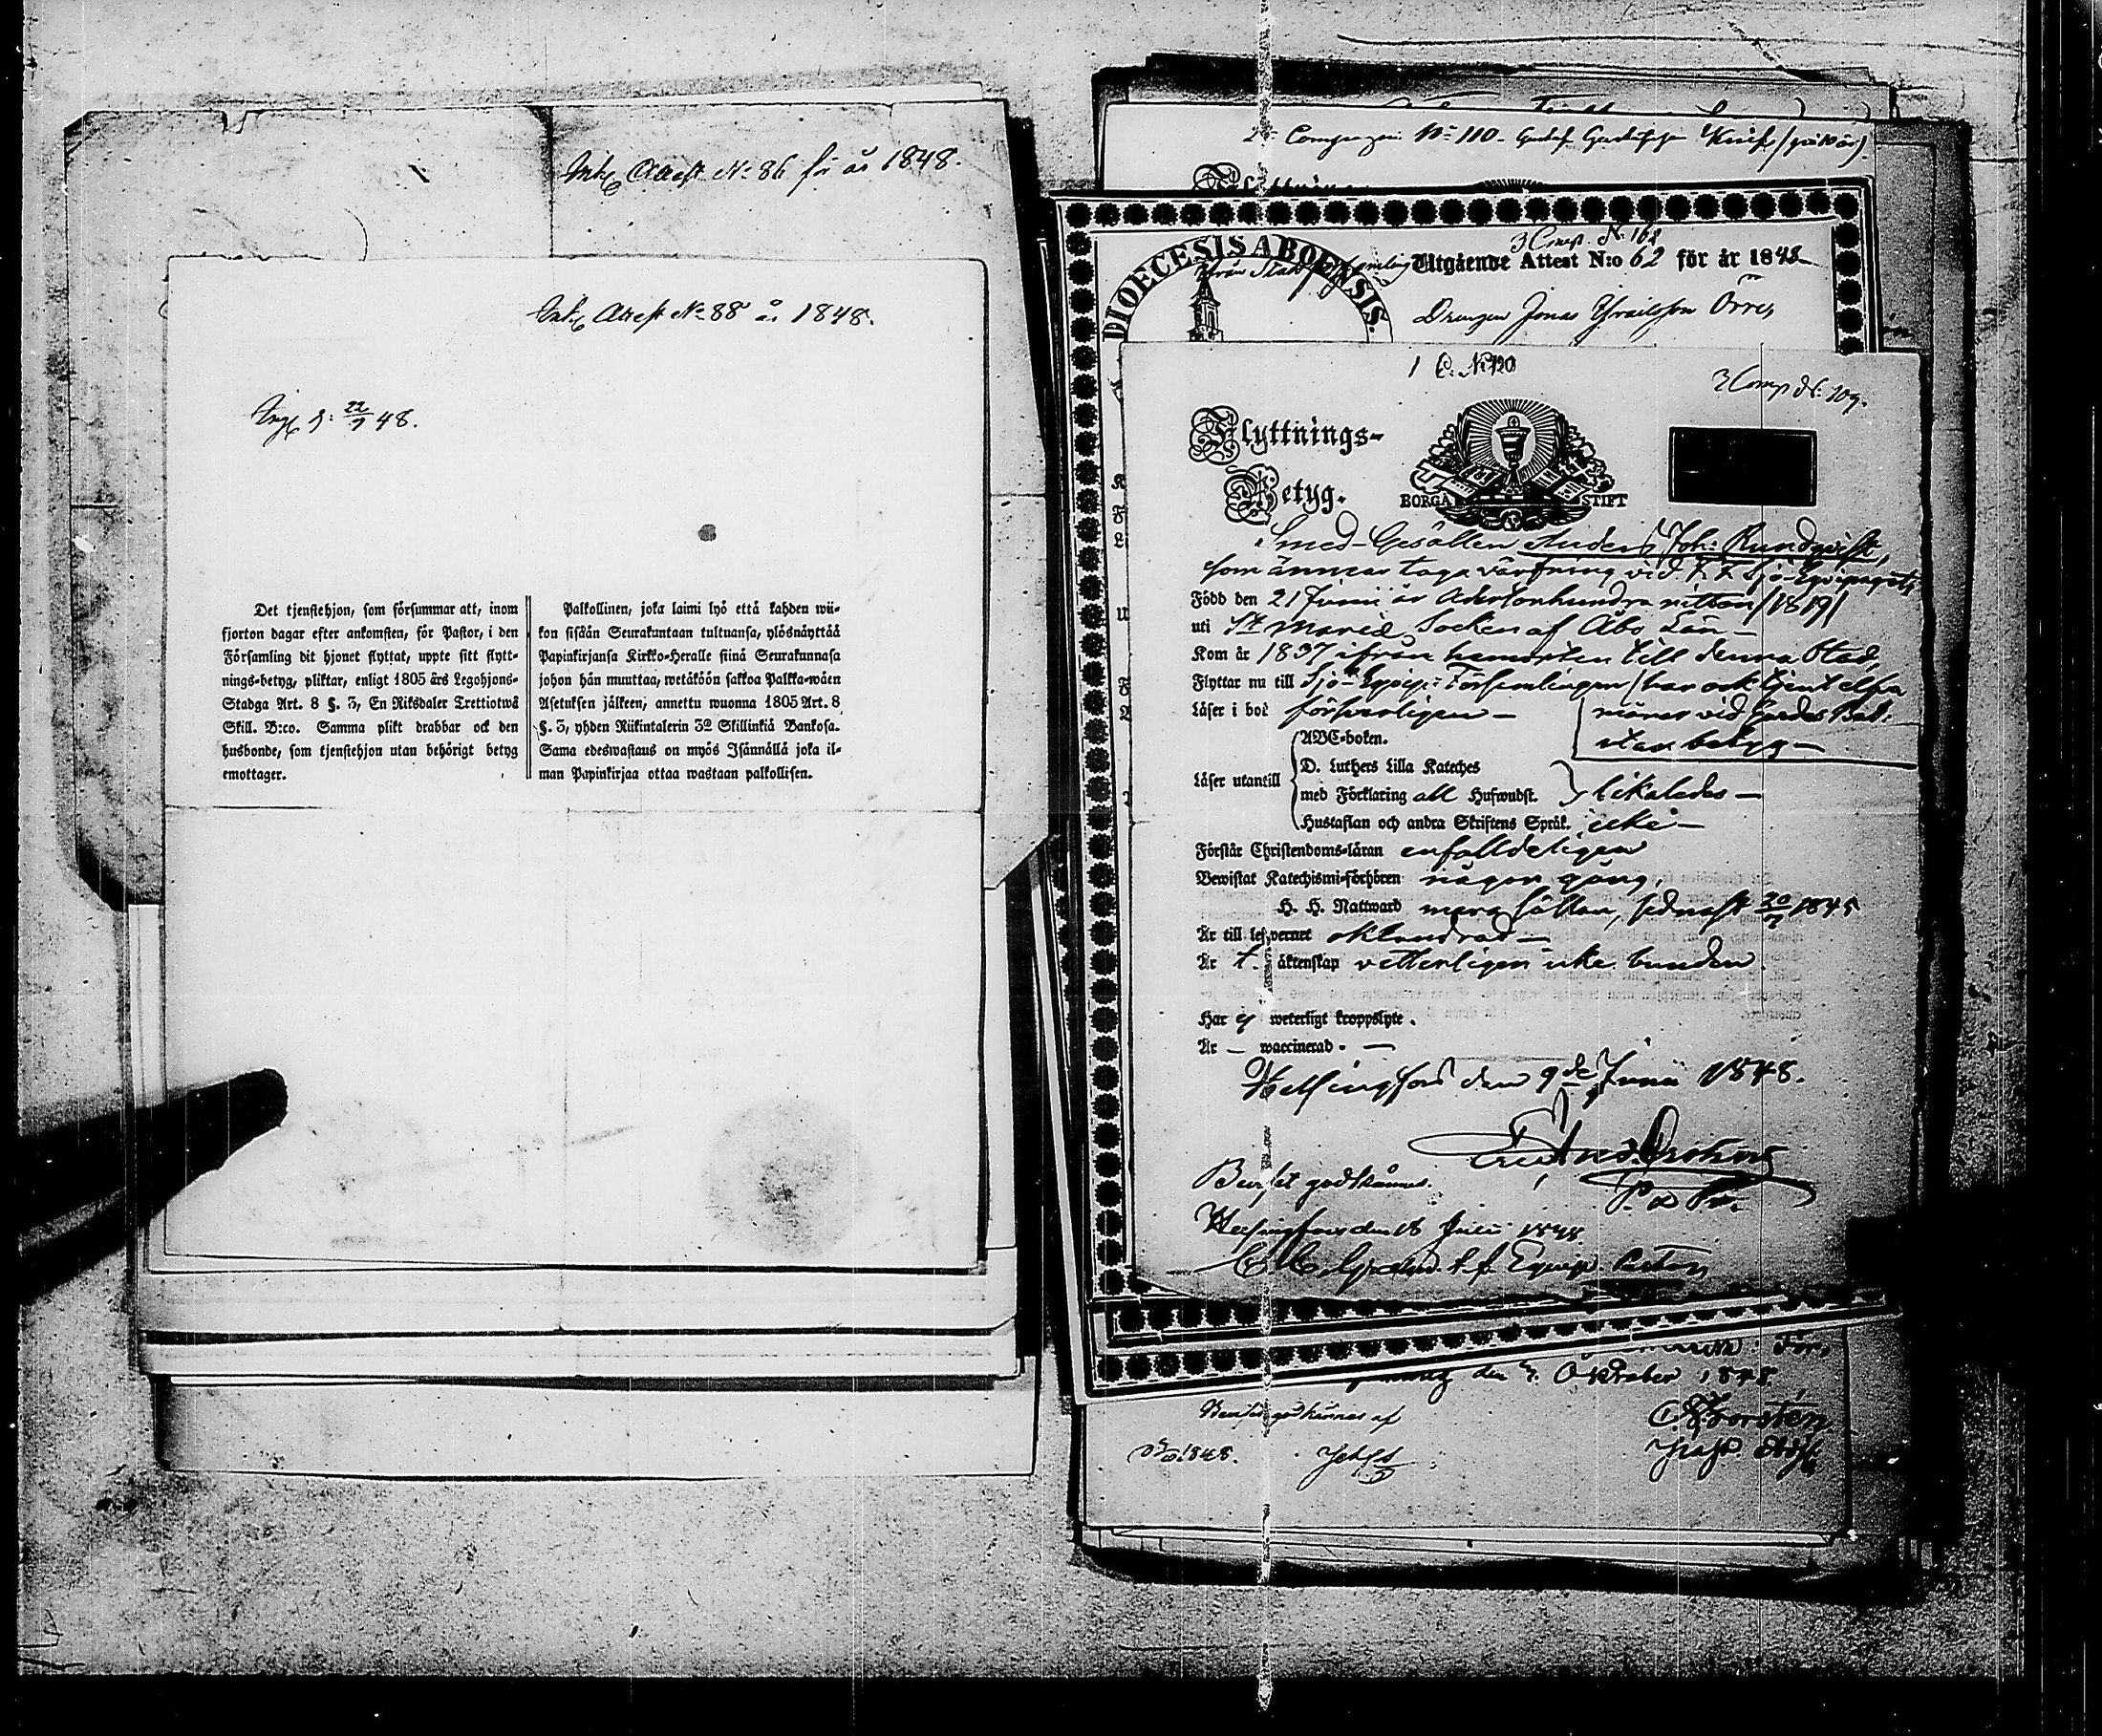 Ink. Attest No. 86 för år 1848.
Ink. Attest No 88 år 1848.
Ing. d. 22/7 48.
Det tjenstehjon, som försummar att, inom
fjorton dagar efter ankomsten, för Pastor, i den
Församling dit hjonet flyttat, uppte sitt flytt-
nings-betyg, pliktar, enligt 1805 års Legohjons-
Stadga Art. 8 §. 3, En Riksdaler Trettiotwå
Skill. B:co. Samma plikt drabbar ock den
husbonde, som tjenstehjon utan behörigt betyg
emottager.
Palkollinen, joka laimi lyö että kahden wii-
kon sisään Seurakuntaan tultuansa, ylösnäyttää
Papinkirjansa Kirkko-Heralle siinä Seurakunnasa
johon hän muuttaa, wetäköön sakkoa Palkka-wäen
Asetuksen jälkeen; annettu wuonna 1805 Art. 8
§. 3, yhden Riikintalerin 32 Skillinkiä Bankosa.
Sama edeswastaus on myös Isännällä joka il-
man Papinkirjaa ottaa wastaan palkollisen.
2. Compagni No 110. Gustaf
3 Comp. No. 162
DIOECESIS ABOENSIS.
Utgående Attest N:o 62 för år 1848
Drengen Jonas Örre,
1 C. No 120
3 Comp No. 109.
Flyttnings-
Betyg.
BORGÅ STIFT
Smed-Gesällen Anders Joh: Rundqvist,
som ämnar taga värfning vid F. F. Sjö-Equipaget;
Född den 21 Junii år Adertonhundra nitton (1819)
uti St Mariæ Socken af Åbo Län -
Kom år 1837 ifrån hemorten till denna Stad,
Flyttar nu till Sjö-Equip: Församlingen (har ock tjent elfva
Läser i bok försvarligen - månar vid Gardes Bat:
utan betyg -
ABC-boken.
D. Luthers Lilla Kateches
Läser utantill med Förklaring all Hufwudst. likaledes -
Hustaflan och andra Skriftens Språk. icke -
Förstår Christendoms-läran enfalldeligen
Bewistat Katechismi-förhören någon gång,
H. H. Nattward mera sällan, sednast 20/7 1845
Är till lefvernet oklandrad -
Är t. äktenskap vetterligen icke bunden
Har ej weterligt kroppslyte.
Är - waccinerad. -
Helsingfors den 9de Junii 1848.
Beviset godkännes.
Helsingfors den 18 Julii 1848
t. f. Equip. Pastor
den 7. Oktober 1848.
Beviset godkännes af
1848.